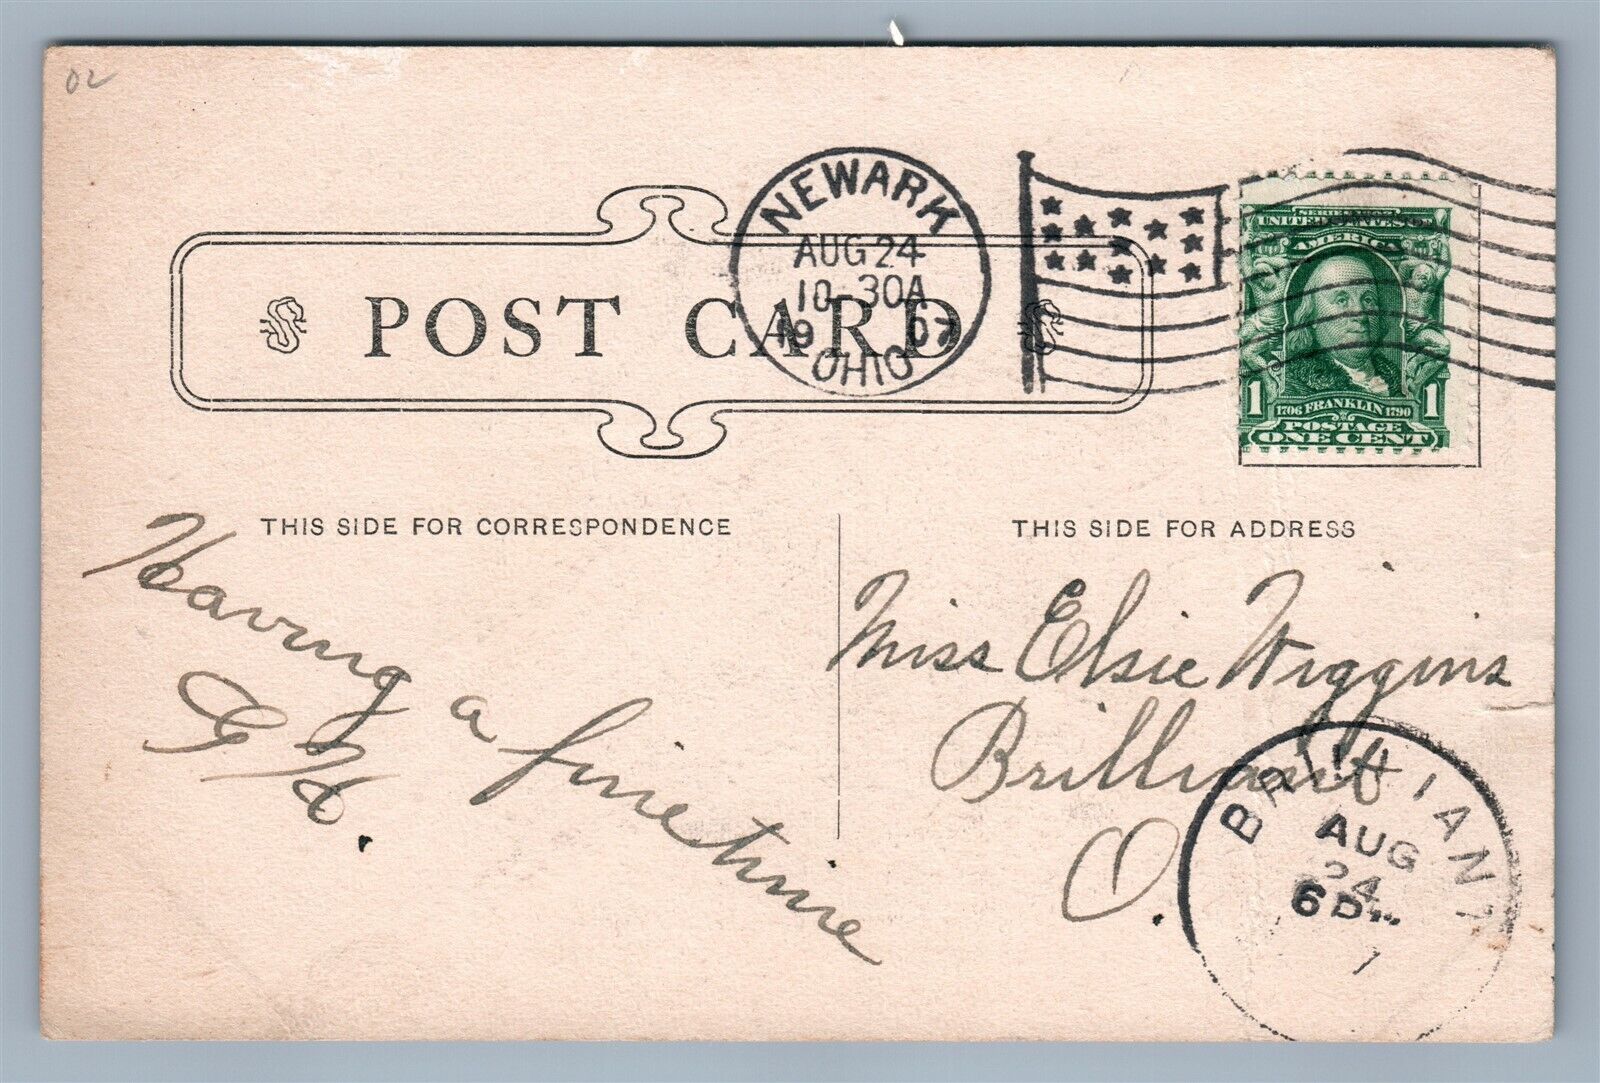 02
NEWARK
AUG 24
10 30A
19 07
OHIO
POST CARD
SERIES 1902
UNITED STATES OF
AMERICA
1 1706 FRANKLIN 1790 1
POSTAGE
ONE CENT
THIS SIDE FOR CORRESPONDENCE
Having a fine time
G. H.
THIS SIDE FOR ADDRESS
Miss Elsie Wiggins
Brilliant
O.
BRILLIANT
AUG
24
6 PM
7